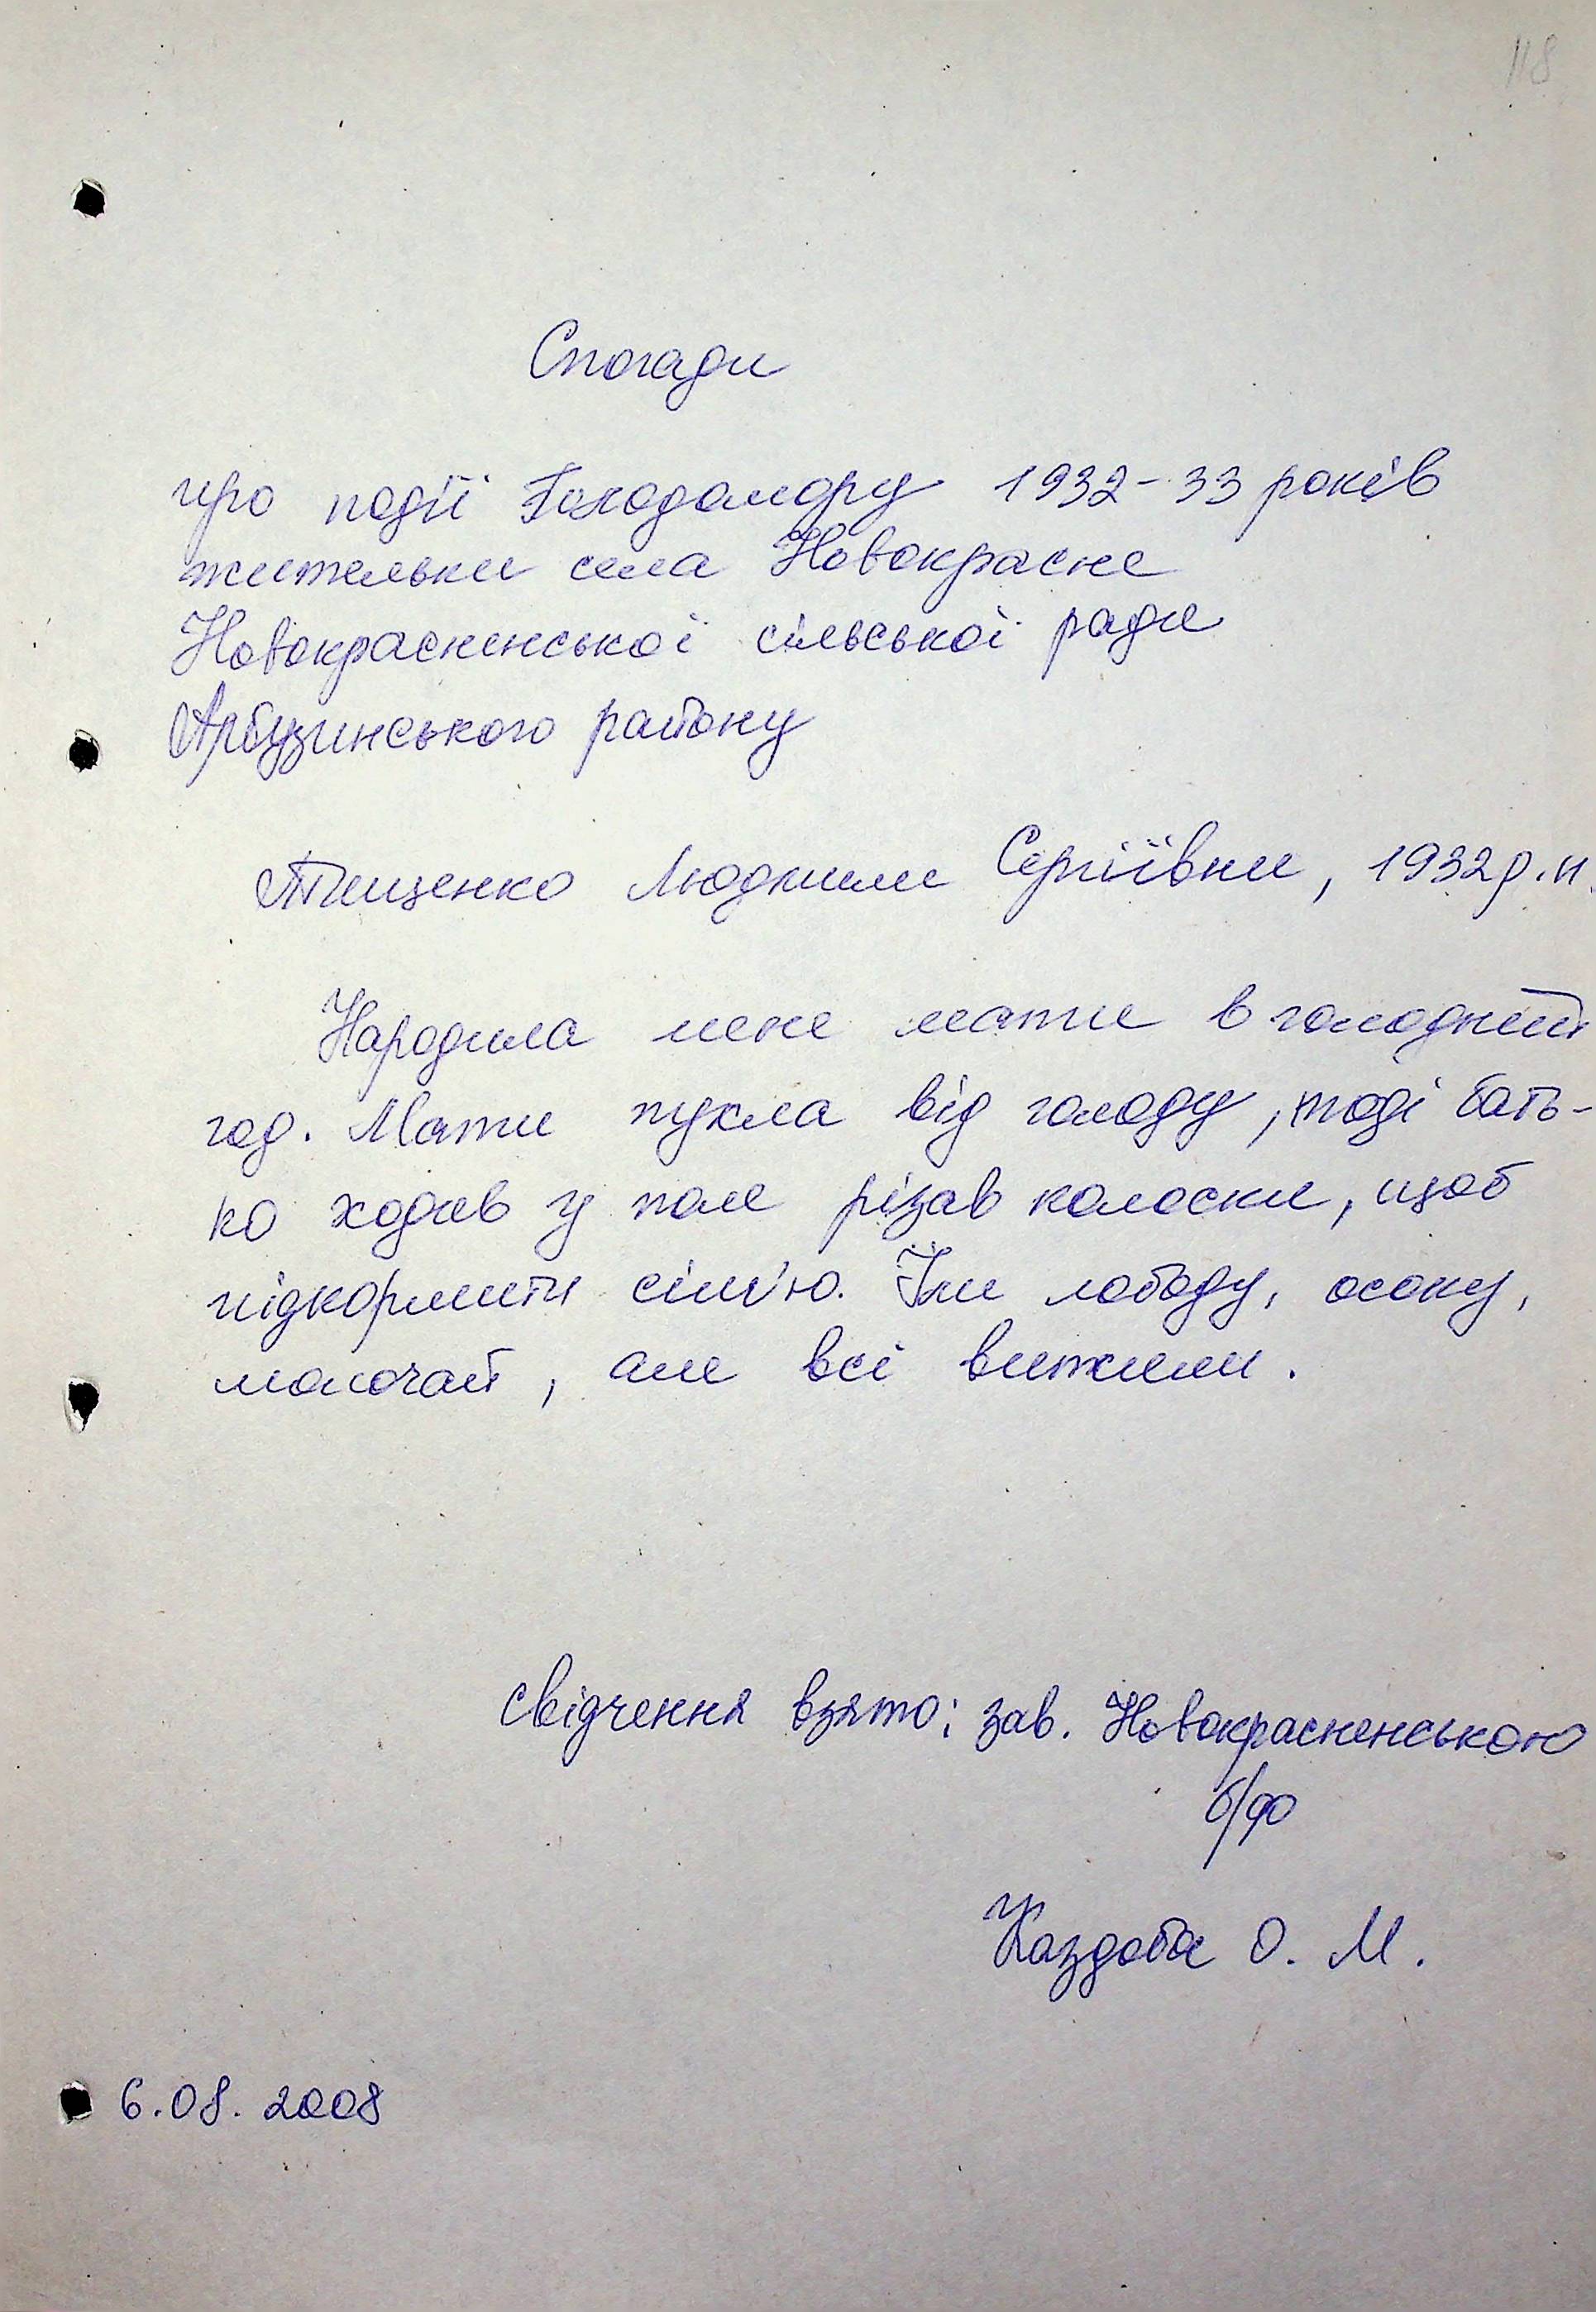 118
Спогади
про події Голодомору 1932-33 років
жительки села Новокрасне
Новокрасненської сільської ради
Арбузинського району
Тищенко Людмили Сергіївни, 1932 р.н.
Народила мене мати в голодний
год. Мати пухла від голоду, тоді бать-
ко ходив у поле різав колоски, щоб
підкормити сім'ю. Їли лободу, осоку,
молочай, але всі вижили.
Свідчення взято: зав. Новокрасненською
б/ф
Каздоба О. М.
6.08.2008